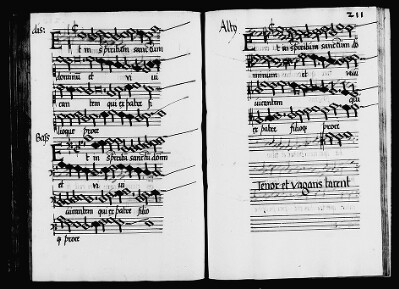 t in spiritum sanctum
dominu et vi vi
can tem qui ex patre fi
lioque proce
Bass
Et in spiritu sanctu domi
et vi vi
cantem qui ex patre filio
q proce
211
Alty
Et in spiritum sanctum do
minum et vi
vicantem qui
ex patre filioq proce
Tenor et Vagans tacent